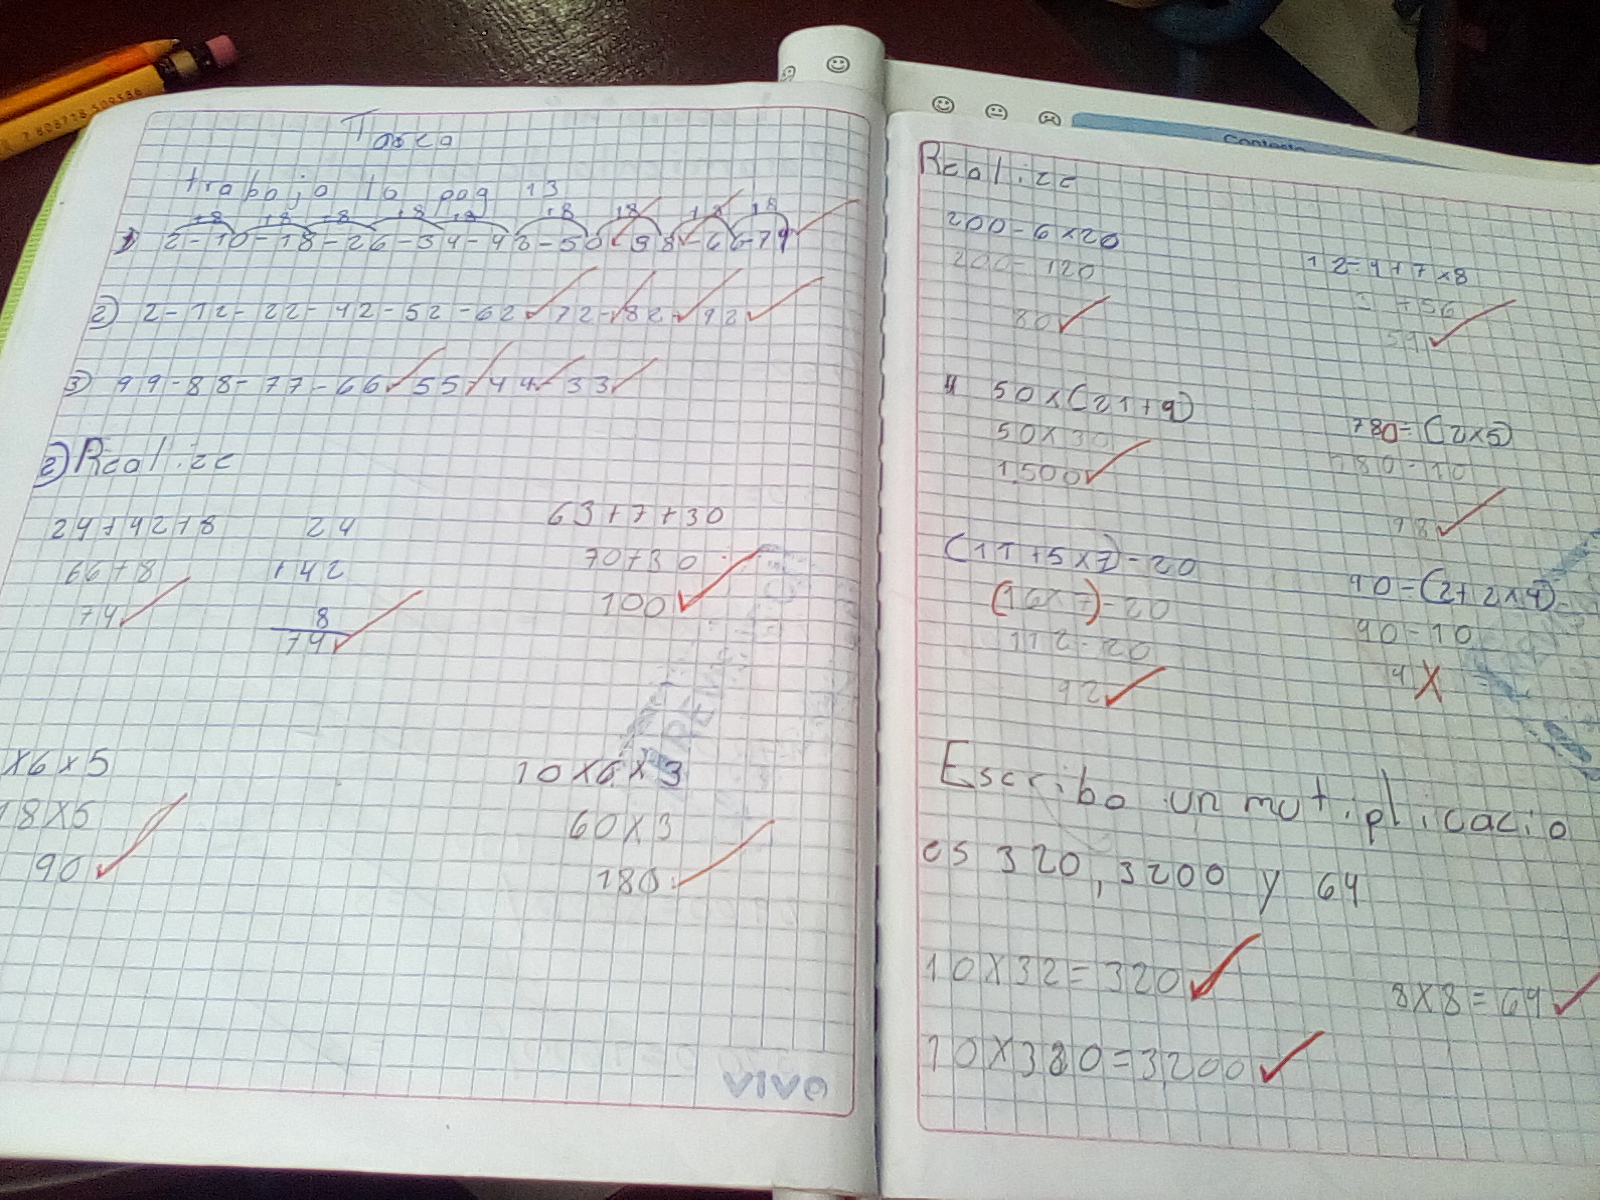 Tarea
trabajo la pag 13
+8 +8 +8 +8 +8 +8 +8 +8 +8
1) 2-10-18-26-34-42-50-58-66-74
2) 2-12-22-42-52-62-72-82-92
3) 99-88-77-66-55-44-33
2) Realize
24+42+8
66+8
74
24
+42
8
74
63+7+30
70+30
100
x6x5
18x5
90
10x6x3
60x3
180
vivo
Contesto
Realize
200-6x20
200-120
80
12-9+7x8
3+56
59
50x(21+9)
50x30
1,500
(2x5)
(11+5x7)-20
(16x7)-20
112-20
92
90-(2+2x4)
90-10
Escribo un mutiplicacio
es 320, 3200 y 64
10x32=320
8x8=64
10x320=3,200
7 808718 509536